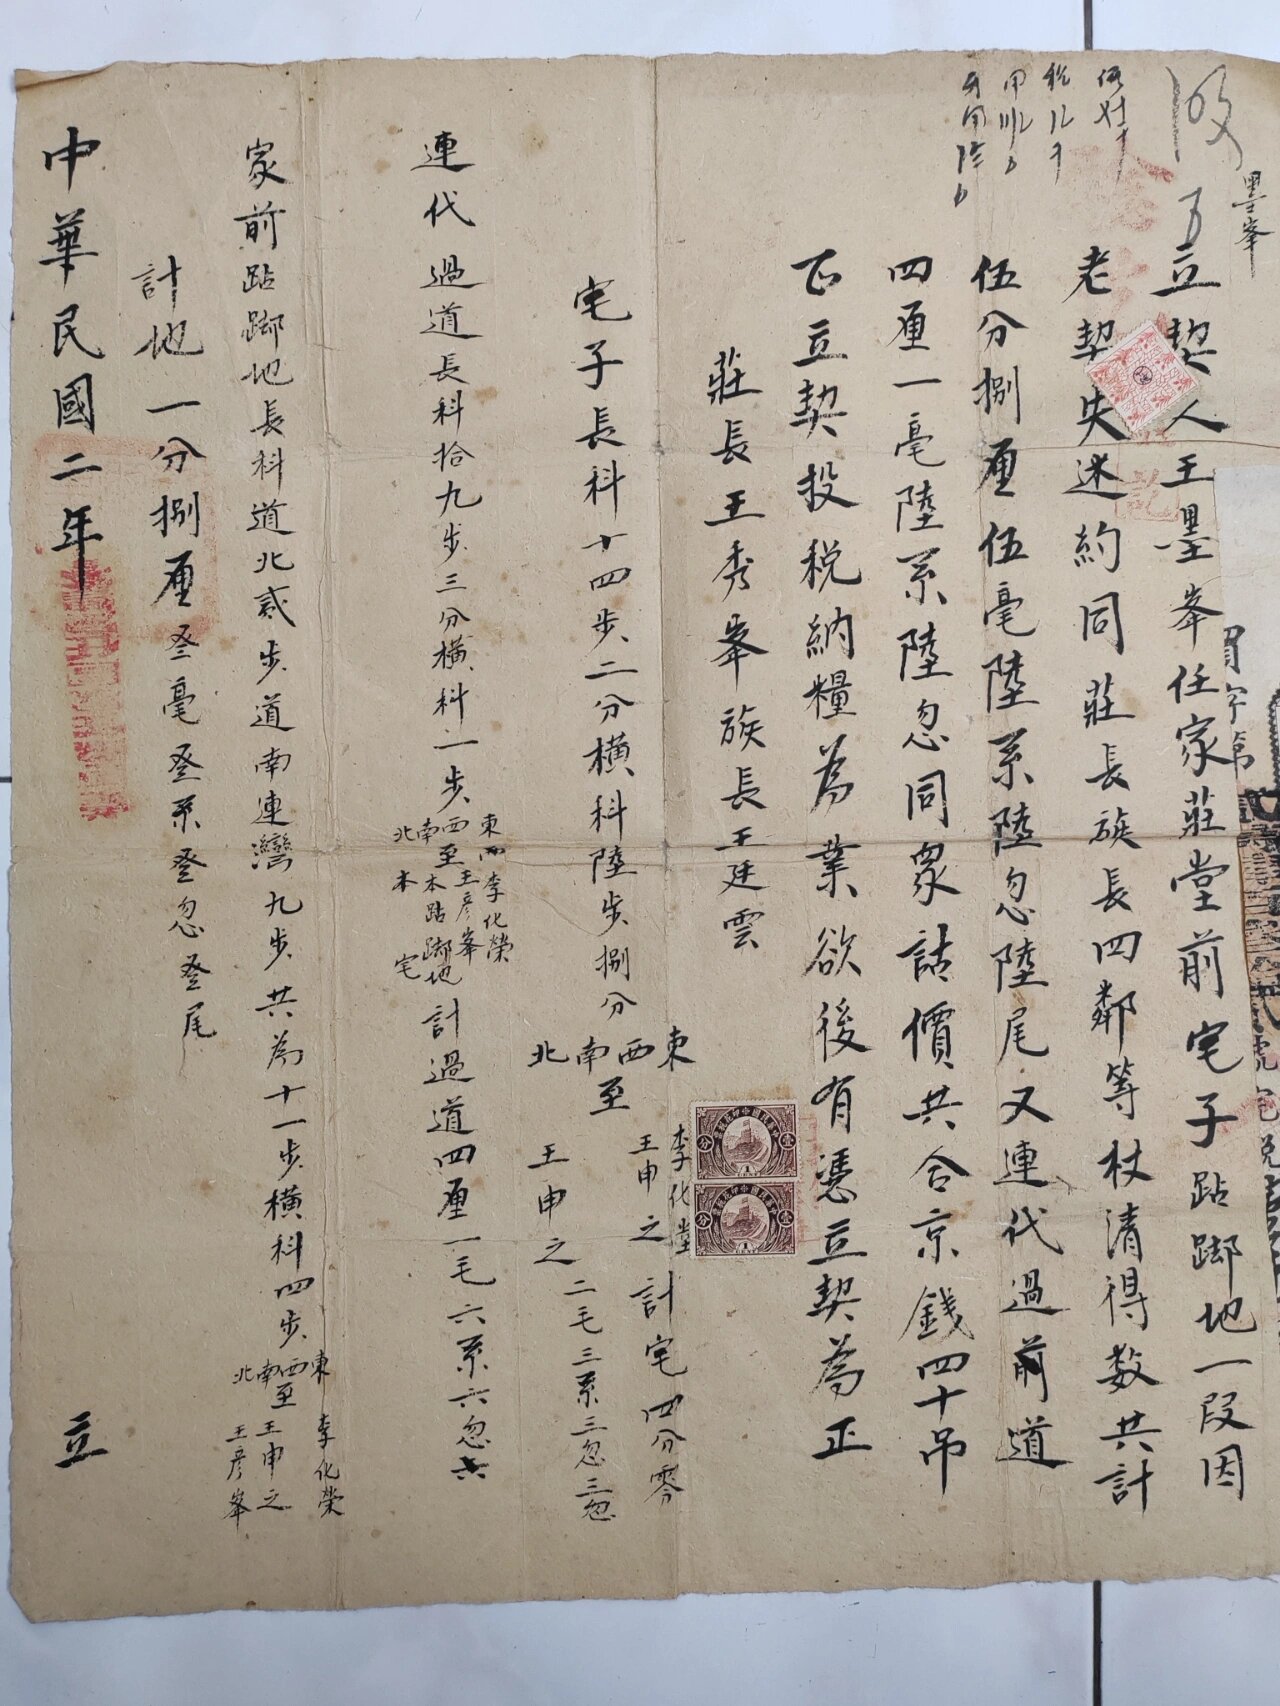 墨峯
立契人王墨峯任家莊堂前宅子跕踋地一段因
老契失迷約同莊長族長四鄰等杖清得数共計
伍分捌厘伍毫陸系陸忽陸尾又連代過前道
四厘一毫陸系陸忽同衆詁價共合京錢四十吊
正立契投税納糧為業欲後有憑立契為正
莊長王秀峯族長王廷雲
宅子長科十四步二分横科陸步捌分
東西南北至
李化堂
王申之
王申之
計宅四分零
二毛三系三忽三忽
連代過道長科拾九步三分横科一步
東西南北至
李化榮
王彦峯
本跕踋地
本宅
計過道四厘一毛六系六忽六
家前跕踋地長科道北贰步道南連灣九步共為十一步横科四步
東西南北至
李化榮
王申之
王彦峯
計地一分捌厘叁毫叁系叁忽叁尾
中華民國二年
立